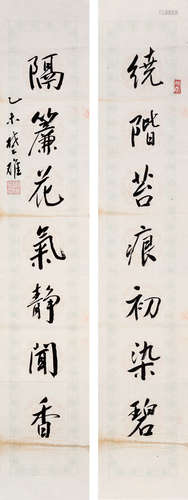 繞階苔痕初染碧
隔簾花氣靜聞香
乙未